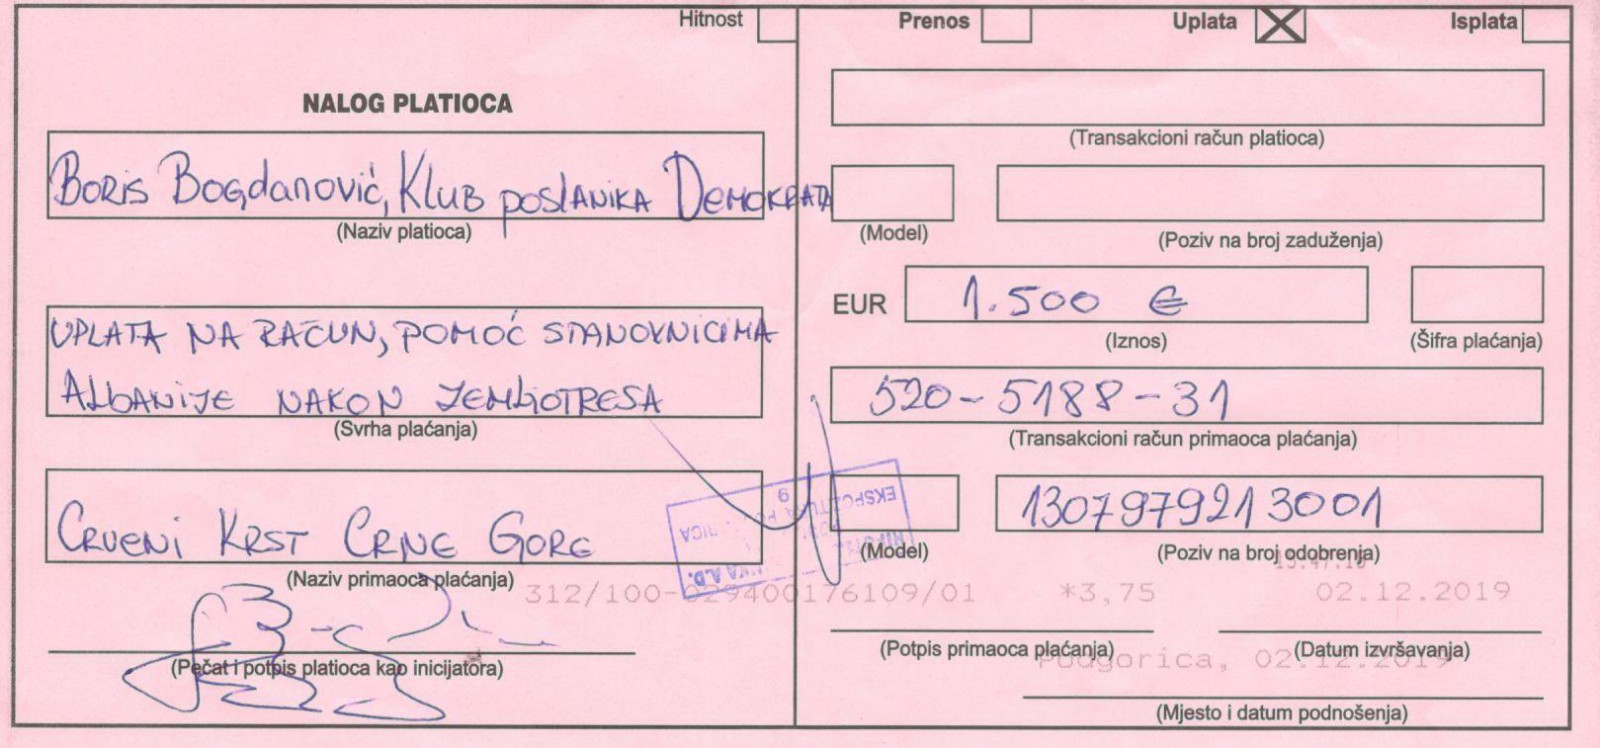 Hitnost
Prenos
Uplata
Isplata
NALOG PLATIOCA
Boris Bogdanović, Klub poslanika Demokrata
(Naziv platioca)
UPLATA NA RAČUN, POMOĆ STANOVNICIMA
ALBANIJE NAKON ZEMLJOTRESA
(Svrha plaćanja)
Crveni Krst Crne Gore
(Naziv primaoca plaćanja)
(Pečat i potpis platioca kao inicijatora)
(Transakcioni račun platioca)
(Model)
(Poziv na broj zaduženja)
EUR
1.500 €
(Iznos)
(Šifra plaćanja)
520-5188-31
(Transakcioni račun primaoca plaćanja)
1307979213001
(Model)
(Poziv na broj odobrenja)
EKSPOZITURA
9
A.D.
312/100-029400176109/01 *3,75 02.12.2019
(Potpis primaoca plaćanja)
(Datum izvršavanja)
Podgorica, 02.12.2019
(Mjesto i datum podnošenja)